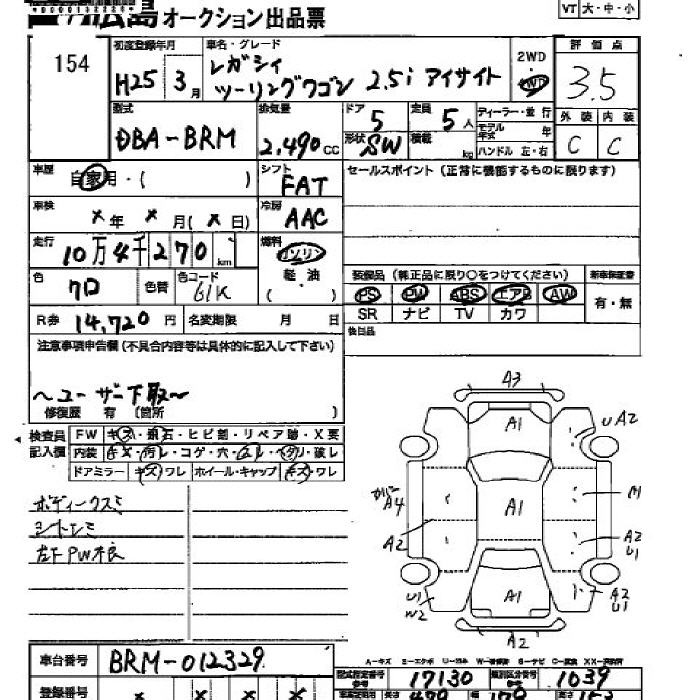 広島 オークション出品票
VT 大・中・小
154
初度登録年月
H25 3月
車名・グレード
レガシィ
ツーリングワゴン 2.5i アイサイト
2WD
4WD
評価点
3.5
型式
DBA-BRM
排気量
2,490cc
ドア 5
形状 SW
定員 5人
積載 kg
ディーラー・並行
モデル年式 年
ハンドル 左・右
外装 内装
C C
車歴
自家用・( )
シフト
FAT
セールスポイント (正常に機能するものに限ります)
車検
×年 ×月(×日)
冷房
AAC
走行
10万4千270km
燃料
ガソリン
軽・油
( )
色
クロ
色替
色コード
61K
装備品 (純正品に限り○をつけてください)
新車保証書
PS PW ABS エアB AW
SR ナビ TV カワ
有・無
R券 14,720円
名変期限 月 日
後日品
注意事項申告欄 (不具合内容等は具体的に記入して下さい)
〜ユーザー下取〜
修復歴 有 (箇所 )
検査員
記入欄
FW キズ・飛石・ヒビ割・リペア跡・X要
内装 キズ・汚レ・コゲ・穴・破レ
ドアミラー キズ・ワレ ホイール・キャップ キズ・ワレ
ボディークスミ
シートシミ
左F PW不良
A3
A1
UA2
カバー
A4
A1
M
A2
A2
U1
U1
W2
A1
A2
U1
A2
車台番号 BRM-012329
A-キズ
型式指定番号 17130
類別区分番号 1039
登録番号